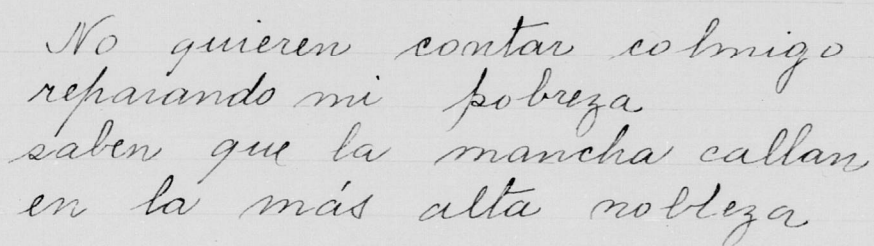 No quieren contar colmigo
reparando mi pobreza
saben que la mancha callan
en la más alta nobleza